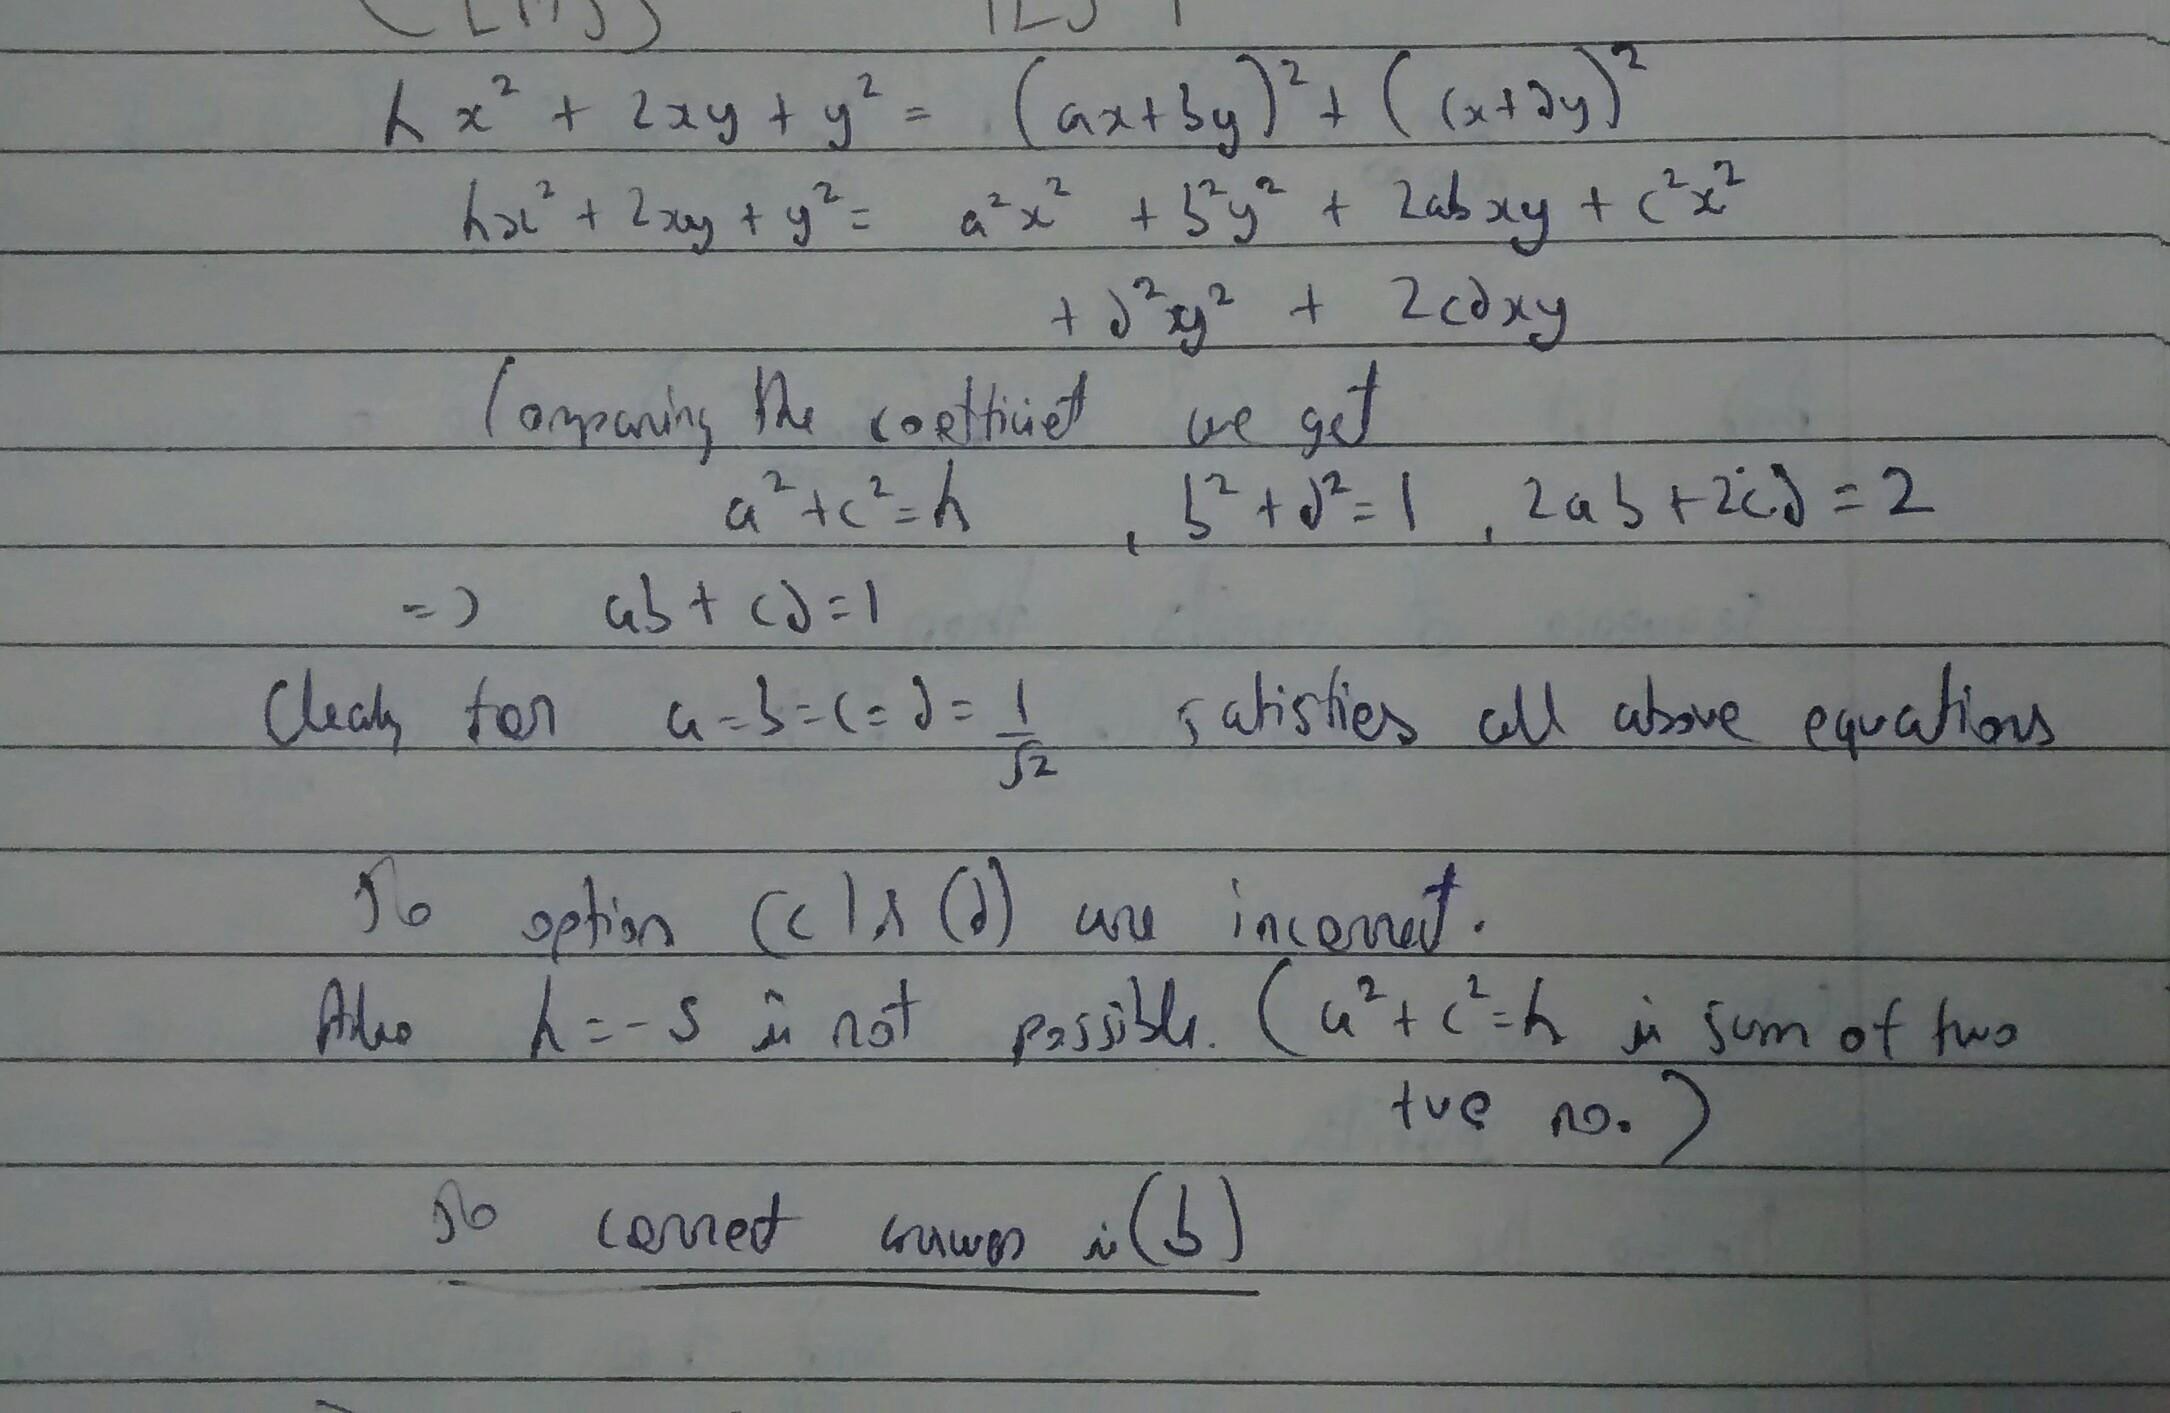 h x² + 2xy + y² = (ax+by)² + (cx+dy)²
hx² + 2xy + y² = a²x² + b²y² + 2abxy + c²x²
+ d²y² + 2cdxy
Comparing the coefficiet we get
a²+c²=h , b²+d²=1 , 2ab+2cd=2
=> ab + cd=1
Clealy for a=b=c=d= 1/√2 satisfies all above equations
So option (c) & (d) are incorrect.
Also h=-5 is not possible. (a²+c²=h is sum of two
+ve no.)
So correct answer is (b)